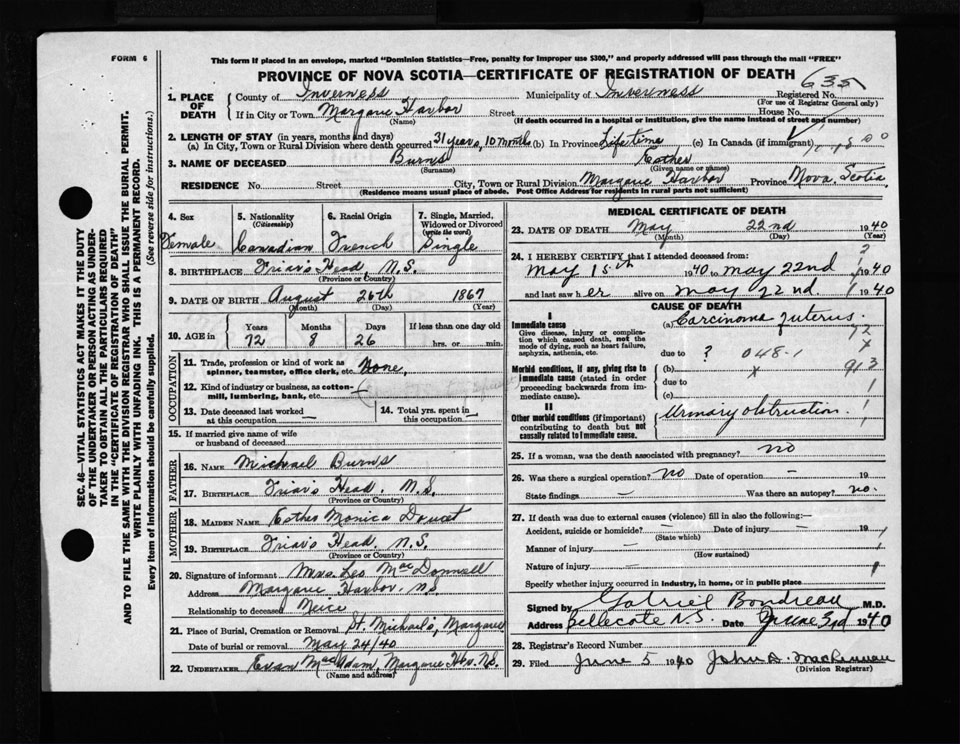 FORM 6
This form if placed in an envelope, marked "Dominion Statistics—Free, penalty for improper use $300," and properly addressed will pass through the mail "FREE"
PROVINCE OF NOVA SCOTIA—CERTIFICATE OF REGISTRATION OF DEATH
635
1. PLACE OF DEATH County of Inverness Municipality of Inverness Registered No.
(For use of Registrar General only)
If in City or Town Margaree Harbor Street House No.
(Name) (If death occurred in a hospital or institution, give the name instead of street and number)
2. LENGTH OF STAY (in years, months and days)
(a) In City, Town or Rural Division where death occurred 31 years, 10 months (b) In Province Lifetime (c) In Canada (if immigrant)
3. NAME OF DECEASED Burns Esther
(Surname) (Given name or names)
RESIDENCE No. Street City, Town or Rural Division Margaree Harbor Province Nova Scotia
(Residence means usual place of abode. Post Office Address for residents in rural parts not sufficient)
SEC. 46—VITAL STATISTICS ACT MAKES IT THE DUTY
OF THE UNDERTAKER OR PERSON ACTING AS UNDER-
TAKER TO OBTAIN ALL THE PARTICULARS REQUIRED
IN THE "CERTIFICATE OF REGISTRATION OF DEATH"
AND TO FILE THE SAME WITH THE DIVISION REGISTRAR WHO SHALL ISSUE THE BURIAL PERMIT.
WRITE PLAINLY WITH UNFADING INK. THIS IS A PERMANENT RECORD.
Every item of information should be carefully supplied. (See reverse side for instructions.)
4. Sex Female
5. Nationality (Citizenship) Canadian
6. Racial Origin French
7. Single, Married, Widowed or Divorced (write the word) Single
8. BIRTHPLACE Friar's Head, N.S.
(Province or Country)
9. DATE OF BIRTH August 26th 1867
(Month) (Day) (Year)
10. AGE in Years Months Days If less than one day old
72 8 26 hrs. or min.
OCCUPATION
11. Trade, profession or kind of work as spinner, teamster, office clerk, etc. None,
12. Kind of industry or business, as cotton-mill, lumbering, bank, etc.
13. Date deceased last worked at this occupation —
14. Total yrs. spent in this occupation —
15. If married give name of wife or husband of deceased
FATHER
16. NAME Michael Burns
17. BIRTHPLACE Friar's Head, N.S.
(Province or Country)
MOTHER
18. MAIDEN NAME Esther Monica Doucet
19. BIRTHPLACE Friar's Head, N.S.
(Province or Country)
20. Signature of informant Mrs. Leo MacDonnell
Address Margaree Harbor, N.S
Relationship to deceased Neice
21. Place of Burial, Cremation or Removal St. Michael's, Margaree
Date of burial or removal May 24/40
22. UNDERTAKER Evan MacAdam, Margaree Hbr. N.S.
(Name and address)
MEDICAL CERTIFICATE OF DEATH
23. DATE OF DEATH May 22nd 1940
(Month) (Day) (Year)
24. I HEREBY CERTIFY that I attended deceased from:
May 15th 1940 to May 22nd 1940
and last saw her alive on May 22nd 1940
CAUSE OF DEATH
I
Immediate cause
Give disease, injury or complication which caused death, not the mode of dying, such as heart failure, asphyxia, asthenia, etc.
(a) Carcinoma Uterus.
due to ? 048-1
Morbid conditions, if any, giving rise to immediate cause (stated in order proceeding backwards from immediate cause).
(b)
due to
(c)
II
Other morbid conditions (if important) contributing to death but not causally related to immediate cause.
Urinary obstruction.
25. If a woman, was the death associated with pregnancy? no
26. Was there a surgical operation? no Date of operation — 19
State findings — Was there an autopsy? no.
27. If death was due to external causes (violence) fill in also the following:—
Accident, suicide or homicide? — Date of injury — 19
(State which)
Manner of injury —
(How sustained)
Nature of injury —
Specify whether injury occurred in industry, in home, or in public place
Signed by Gabriel Boudreau M.D.
Address Bellecote N.S. Date June 3rd 1940
28. Registrar's Record Number
29. Filed June 5 1940
(Division Registrar)